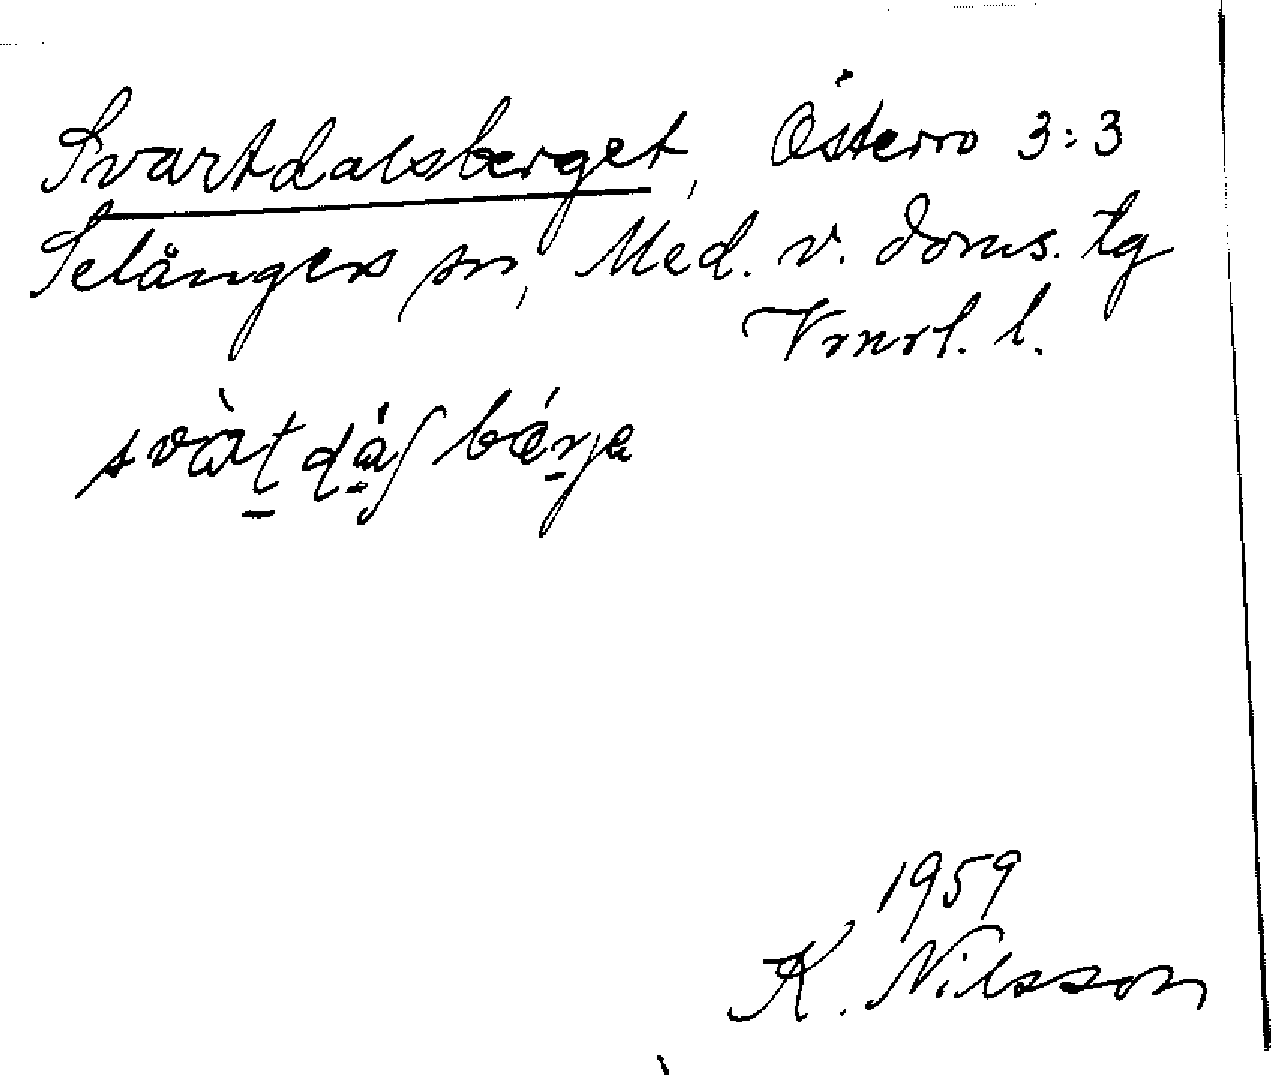 Svartdalsberget, Österro 3:3
Selångers sn, Med. v. doms. tg
Vrnrl. l.
svàt dáʃ bérje
1959
K. Nilsson